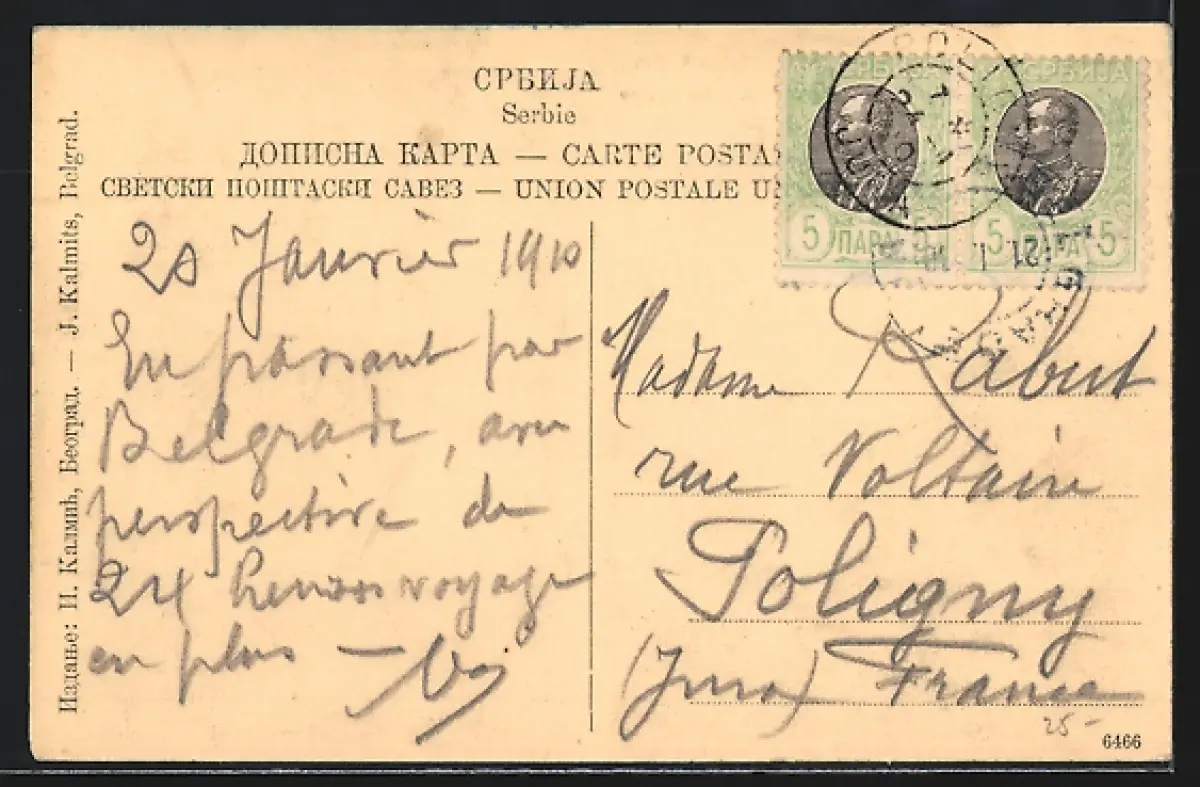 СРБИЈА
Serbie
ДОПИСНА КАРТА — CARTE POSTA
СВЕТСКИ ПОШТАСКИ САВЕЗ — UNION POSTALE U
Издање: Н. Калмић, Београд. — J. Kalmits, Belgrad.
СРБИЈА
5 ПАРА 5
СРБИЈА
5 ПАРА 5
POLIGNY
JURA
20 Janvier 1910
En passant par
Belgrade, avec
perspective de
24 heures voyage
en plus —
Madame Rabut
rue Voltaire
Poligny
(Jura) France
25-
6466